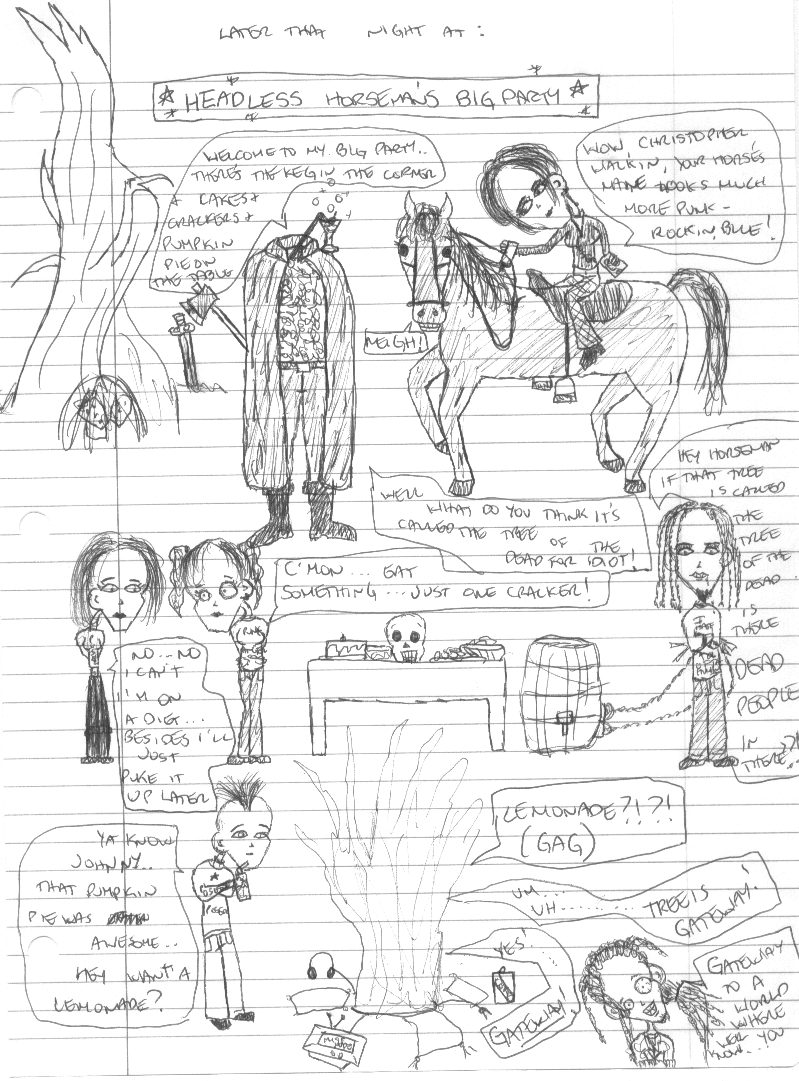 LATER THAT NIGHT AT:
HEADLESS HORSEMAN'S BIG PARTY
WELCOME TO MY BIG PARTY..
THERE'S THE KEG IN THE CORNER
& CAKES &
CRACKERS &
PUMPKIN
PIE ON
THE TABLE
WOW CHRISTOPHER
WALKIN, YOUR HORSE'S
MANE LOOKS MUCH
MORE PUNK-
ROCK IN BLUE!
NEIGH!
HEY HORSEMAN
IF THAT TREE
IS CALLED
THE
TREE
OF THE
DEAD
IS
THERE
DEAD
PEOPLE
IN
THERE..?!
WELL
WHAT DO YOU THINK IT'S
CALLED THE TREE OF THE
DEAD FOR IDIOT!
C'MON... EAT
SOMETHING... JUST ONE CRACKER!
NO... NO
I CAN'T
I'M ON
A DIET...
BESIDES I'LL
JUST
PUKE IT
UP LATER
YA KNOW
JOHNNY..
THAT PUMPKIN
PIE WAS
AWESOME..
HEY WANT A
LEMONADE?
LEMONADE?!?!
(GAG)
UM....
UH......... TREE IS
GATEWAY!
YES!
GATEWAY!
GATEWAY
TO A
WORLD
WHOLE
YOU
KNOW...